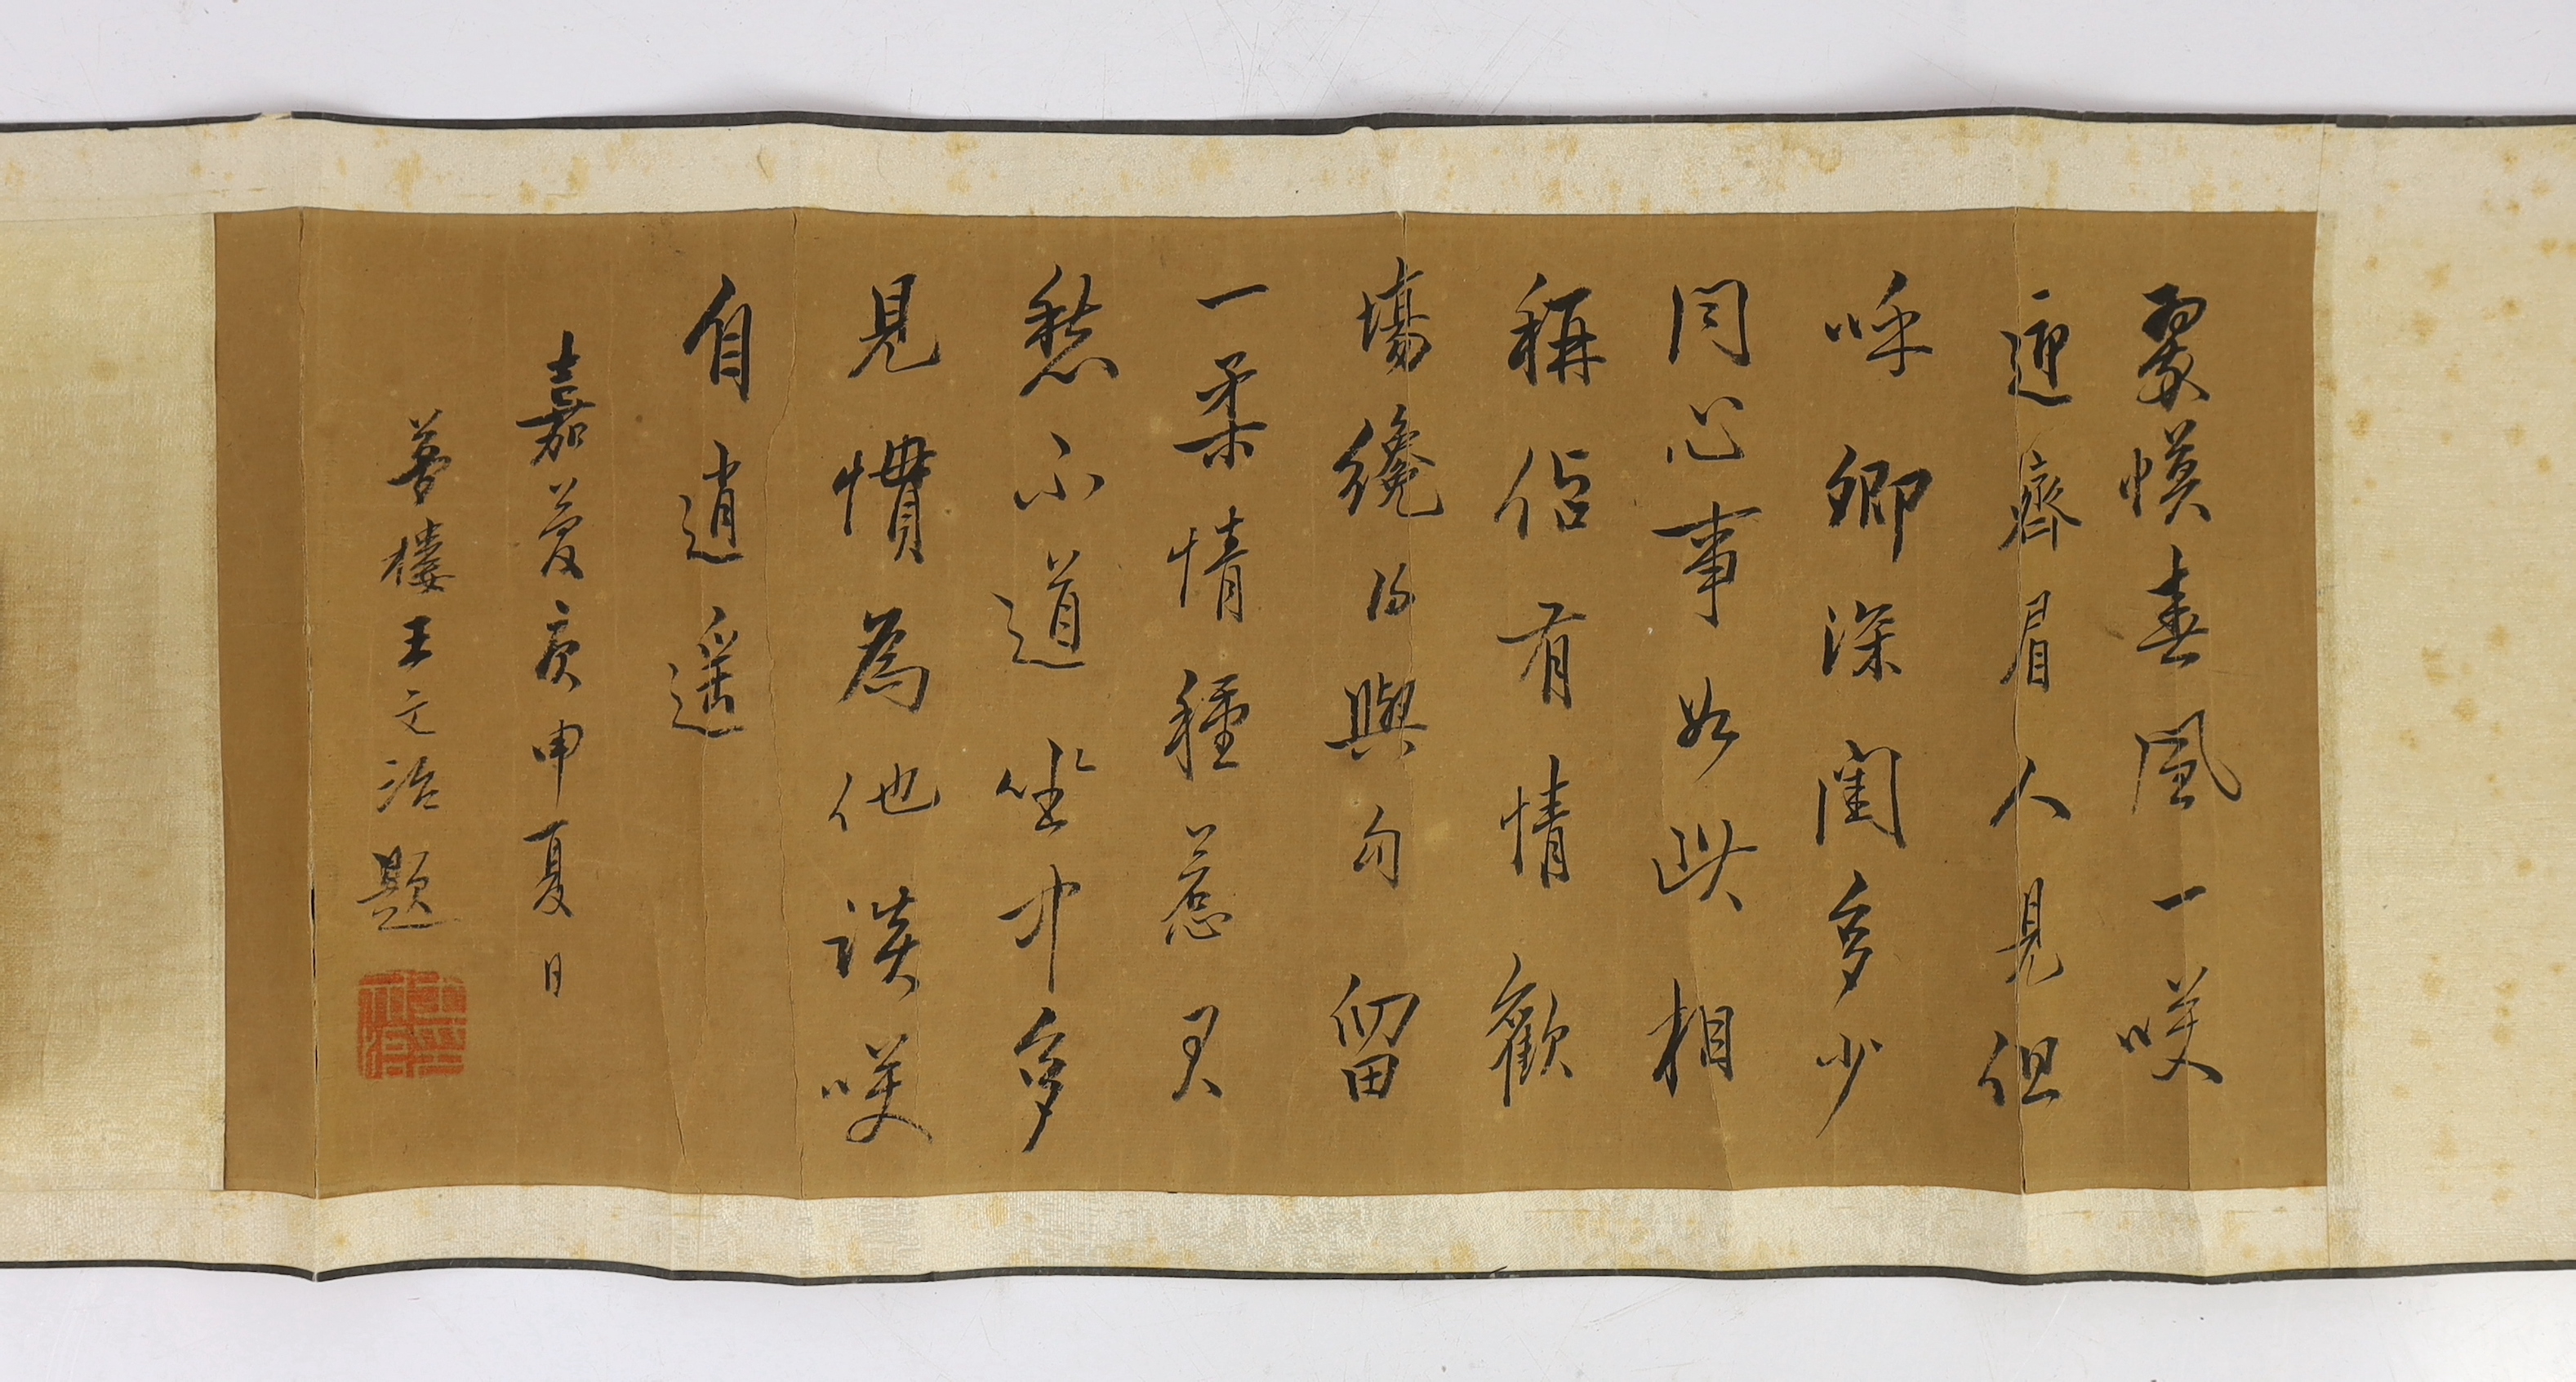 幙春風一笑
迎齊眉人見但
呼卿深閨多少
同心事如此相
稱佔有情歡
場纔得與勾留
一柔情種惹君
愁不道坐中多
見慣為他談笑
自逍遙
嘉慶庚申夏日
夢樓王文治題